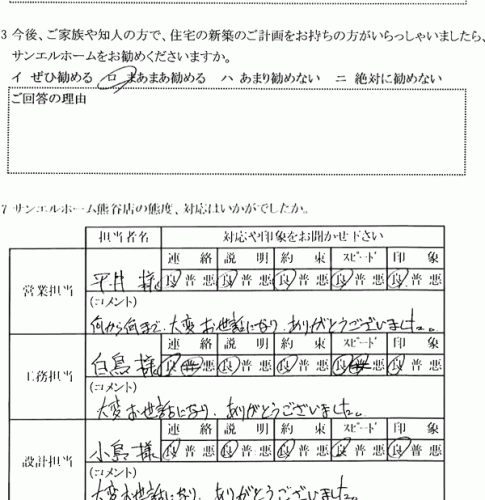 3 今後、ご家族や知人の方で、住宅の新築のご計画をお持ちの方がいらっしゃいましたら、
サンエルホームをお勧めくださいますか。
イ ぜひ勧める ロ まあまあ勧める ハ あまり勧めない ニ 絶対に勧めない
ご回答の理由
7 サンエルホーム熊谷店の態度、対応はいかがでしたか。
担当者名 対応や印象をお聞かせ下さい
連絡 説明 約束 スピード 印象
営業担当 平井 様 良 普 悪 良 普 悪 良 普 悪 良 普 悪 良 普 悪
(コメント)
何から何まで、大変お世話になり、ありがとうございました。
連絡 説明 約束 スピード 印象
工務担当 白鳥 様 良 悪 良 普 悪 良 普 悪 良 悪 良 普 悪
(コメント)
大変お世話になり、ありがとうございました。
連絡 説明 約束 スピード 印象
設計担当 小島 様 良 普 悪 良 普 悪 良 普 悪 良 普 悪 良 普 悪
(コメント)
大変お世話になり、ありがとうございました。